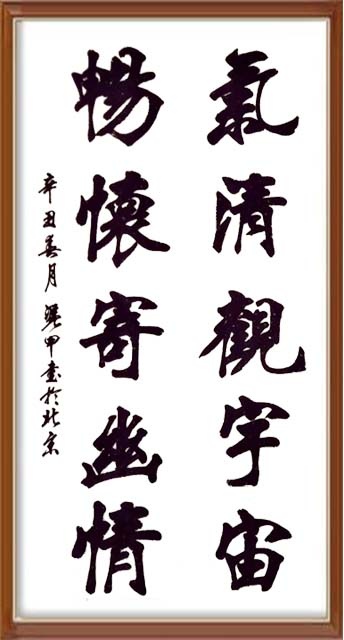 氣清觀宇宙
暢懷寄幽情
辛丑春月 甲書於北京